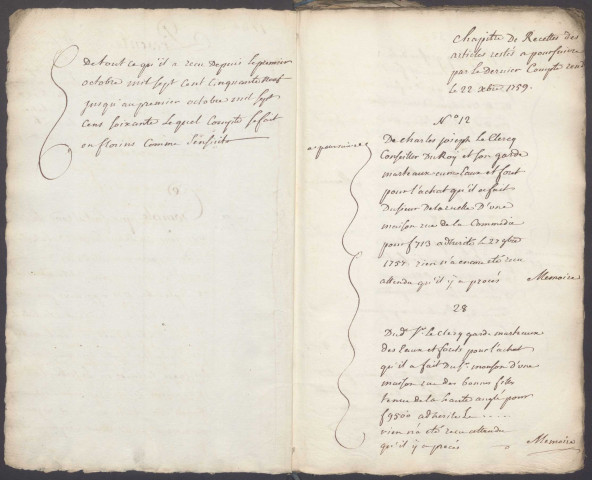 De tout ce qu'il a recu Depuis le premier
octobre mil sept Cent Cinquante neuf
jusqu'au premier octobre mil sept
Cens soixante le quel Compte se fait
en florins Comme s'ensuit
Chapitre De Recettes des
articles restés a poursuivre
par le Dernier Compte rendu
le 22 xbre 1759.
N.° 12
a poursuivre
De Charles joseph Le Clercq
Conseiller Du Roy et son garde
marteaux aux Eaux et forets
pour l'achat qu'il a fait
Du sieur Delaruelle D'une
maison rue de la Comedie
pour f 713 adherité le 27 9bre
1757. rien n'a encore eté recu
attendu qu'il y a procés Memoire
28
Du d.t S.r le Clercq garde marteaux
des Eaux et forets pour l'achat
qu'il a fait du S.r d'une
maison rue des bonnes filles
tenue de la haute pour
f 9500 adherité le ....
rien n'a eté recu attendu
qu'il y a procés Memoire